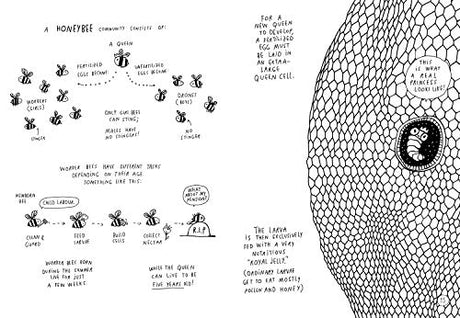 A HONEYBEE COMMUNITY CONSISTS OF:
A QUEEN
FERTILIZED
EGGS BECOME:
UNFERTILIZED
EGGS BECOME
WORKERS
(GIRLS)
DRONES
(BOYS)
ONLY GIRL BEES
CAN STING;
MALES HAVE
NO STINGERS!
STINGER
NO
STINGER
WORKER BEES HAVE DIFFERENT TASKS
DEPENDING ON THEIR AGE.
SOMETHING LIKE THIS:
NEWBORN
BEE
CHILD LABOUR
WHAT
ABOUT MY
PENSION?
CLEAN &
GUARD
FEED
LARVAE
BUILD
CELLS
COLLECT
NECTAR
R.I.P
WORKER BEES BORN
DURING THE SUMMER
LIVE FOR JUST
A FEW WEEKS
WHILE THE QUEEN
CAN LIVE TO BE
FIVE YEARS OLD!
FOR A
NEW QUEEN
TO DEVELOP,
A FERTILIZED
EGG MUST
BE LAID IN
AN EXTRA-
LARGE
QUEEN CELL.
THIS IS WHAT
A REAL
PRINCESS
LOOKS LIKE!
THE LARVA
IS THEN EXCLUSIVELY
FED WITH A VERY
NUTRITIOUS
"ROYAL JELLY."
(ORDINARY LARVAE
GET TO EAT MOSTLY
POLLEN AND HONEY)